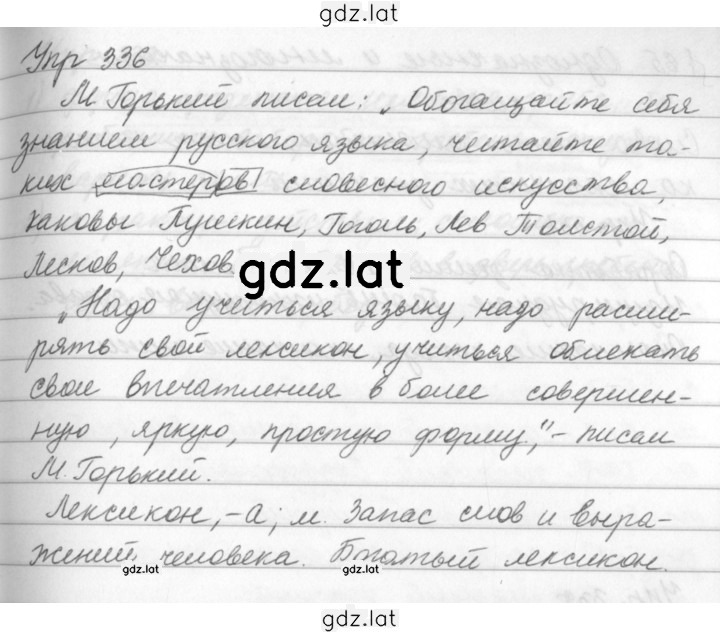 gdz.lat
Упр 336
М. Горький писал: „Обогащайте себя
знанием русского языка, читайте та-
ких мастеров словесного искусства,
каковы Пушкин, Гоголь, Лев Толстой,
Лесков, Чехов.
gdz.lat
„Надо учиться языку, надо расши-
рять свой лексикон, учиться облекать
свои впечатления в более совершен-
ную, яркую, простую форму", - писал
М. Горький.
Лексикон, -а; м. Запас слов и выра-
жений человека. Богатый лексикон.
gdz.lat gdz.lat
gdz.lat